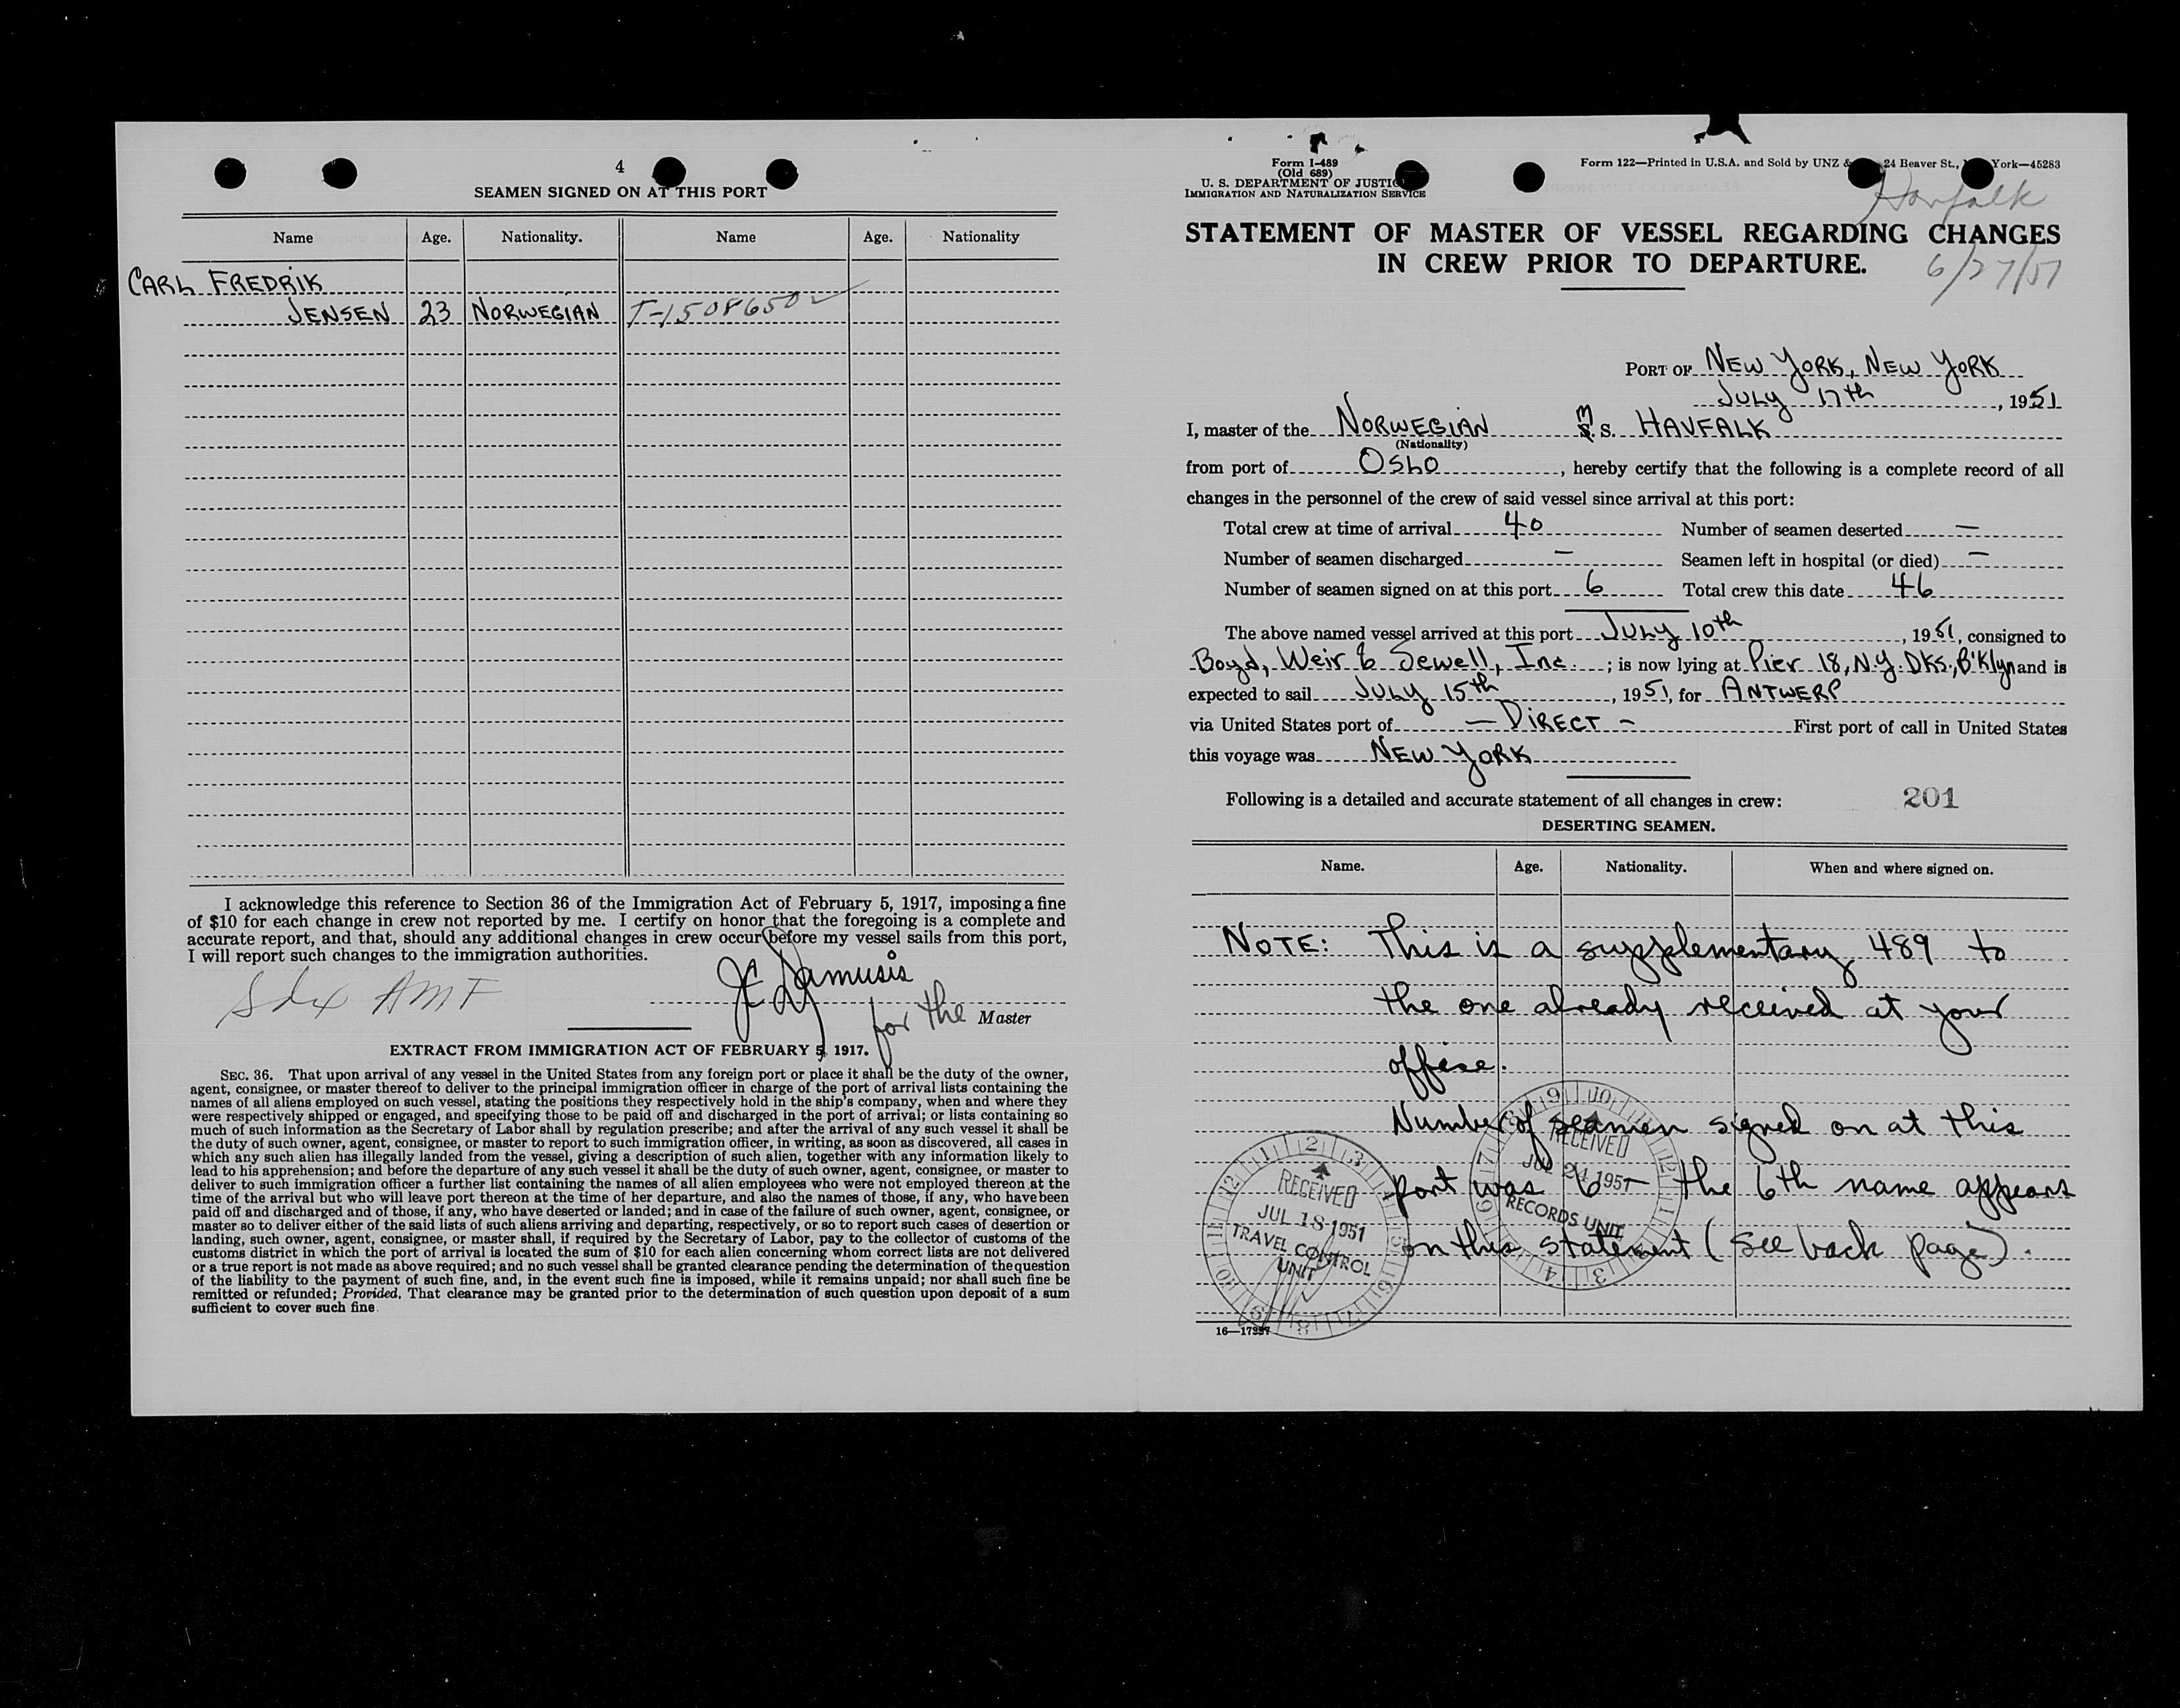 4
SEAMEN SIGNED ON AT THIS PORT
Name Age. Nationality. Name Age. Nationality
CARL FREDRIK
JENSEN 23 NORWEGIAN T-1508650 ✓
I acknowledge this reference to Section 36 of the Immigration Act of February 5, 1917, imposing a fine
of $10 for each change in crew not reported by me. I certify on honor that the foregoing is a complete and
accurate report, and that, should any additional changes in crew occur before my vessel sails from this port,
I will report such changes to the immigration authorities.
for the Master
EXTRACT FROM IMMIGRATION ACT OF FEBRUARY 5, 1917.
SEC. 36. That upon arrival of any vessel in the United States from any foreign port or place it shall be the duty of the owner,
agent, consignee, or master thereof to deliver to the principal immigration officer in charge of the port of arrival lists containing the
names of all aliens employed on such vessel, stating the positions they respectively hold in the ship's company, when and where they
were respectively shipped or engaged, and specifying those to be paid off and discharged in the port of arrival; or lists containing so
much of such information as the Secretary of Labor shall by regulation prescribe; and after the arrival of any such vessel it shall be
the duty of such owner, agent, consignee, or master to report to such immigration officer, in writing, as soon as discovered, all cases in
which any such alien has illegally landed from the vessel, giving a description of such alien, together with any information likely to
lead to his apprehension; and before the departure of any such vessel it shall be the duty of such owner, agent, consignee, or master to
deliver to such immigration officer a further list containing the names of all alien employees who were not employed thereon at the
time of the arrival but who will leave port thereon at the time of her departure, and also the names of those, if any, who have been
paid off and discharged and of those, if any, who have deserted or landed; and in case of the failure of such owner, agent, consignee, or
master so to deliver either of the said lists of such aliens arriving and departing, respectively, or so to report such cases of desertion or
landing, such owner, agent, consignee, or master shall, if required by the Secretary of Labor, pay to the collector of customs of the
customs district in which the port of arrival is located the sum of $10 for each alien concerning whom correct lists are not delivered
or a true report is not made as above required; and no such vessel shall be granted clearance pending the determination of the question
of the liability to the payment of such fine, and, in the event such fine is imposed, while it remains unpaid; nor shall such fine be
remitted or refunded; Provided, That clearance may be granted prior to the determination of such question upon deposit of a sum
sufficient to cover such fine.
Form I-489
(Old 689)
U. S. DEPARTMENT OF JUSTICE
IMMIGRATION AND NATURALIZATION SERVICE
Form 122—Printed in U.S.A. and Sold by UNZ & 24 Beaver St., York—45283
Norfolk
STATEMENT OF MASTER OF VESSEL REGARDING CHANGES
IN CREW PRIOR TO DEPARTURE.
6/27/51
PORT OF NEW YORK, NEW YORK
JULY 17th, 1951
I, master of the NORWEGIAN M. S. HAVFALK
(Nationality)
from port of OSLO, hereby certify that the following is a complete record of all
changes in the personnel of the crew of said vessel since arrival at this port:
Total crew at time of arrival 40 Number of seamen deserted —
Number of seamen discharged — Seamen left in hospital (or died) —
Number of seamen signed on at this port 6 Total crew this date 46
The above named vessel arrived at this port JULY 10th, 1951, consigned to
Boyd, Weir & Sewell, Inc.; is now lying at Pier 18, N.Y. Dks., B'klyn and is
expected to sail JULY 15th, 1951, for ANTWERP
via United States port of — DIRECT — First port of call in United States
this voyage was NEW YORK
Following is a detailed and accurate statement of all changes in crew: 201
DESERTING SEAMEN.
Name. Age. Nationality. When and where signed on.
NOTE: This is a supplementary 489 to
the one already received at your
office.
Number of seamen signed on at this
port was 6 — the 6th name appears
on this statement (see back page).
RECEIVED
JUL 18 1951
TRAVEL CONTROL
UNIT
RECEIVED
JUL 24 1951
RECORDS UNIT
16—17257